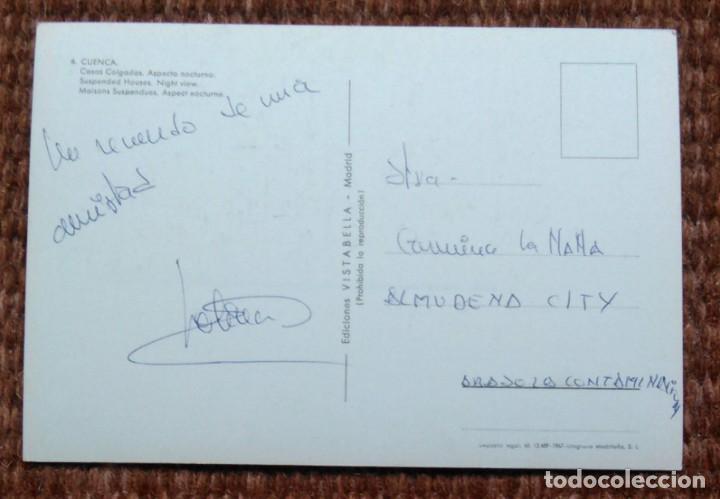 6. CUENCA.
Casas Colgadas. Aspecto nocturno.
Suspended Houses. Night view.
Maisons Suspendues. Aspect nocturne.
Un recuerdo de una
amistad
Ediciones VISTABELLA - Madrid
(Prohibida la reproducción)
Stra-
Carmina La MAÑA
ALMUDENA CITY
ABAJO LA CONTAMINACIÓN
Depósito legal: M. 13.489-1967
todocoleccion